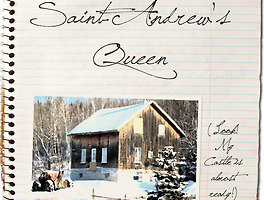 Saint-Andrew's
Queen
(Look!
My
Castle is
almost
ready!)